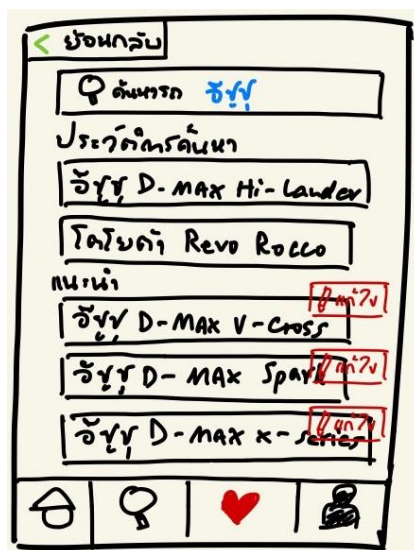 < ย้อนกลับ
ค้นหารถ อีซูซุ
ประวัติการค้นหา
อีซูซุ D-MAX Hi-Lander
โตโยต้า Revo Rocco
แนะนำ
แก้ไข
อีซูซุ D-MAX V-Cross
แก้ไข
อีซูซุ D-MAX Spark
แก้ไข
อีซูซุ D-MAX X-series